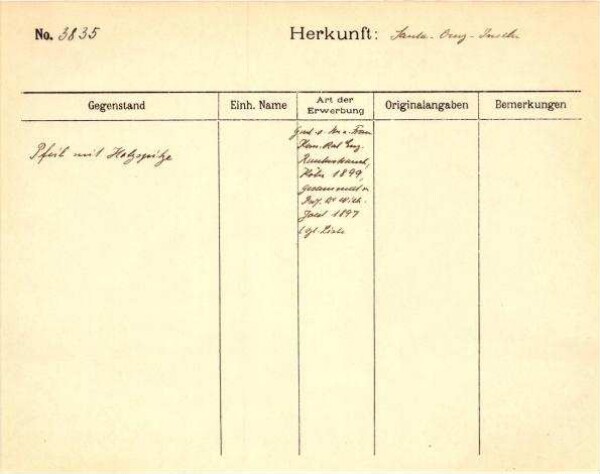 No. 3835
Herkunft: Santa-Cruz-Inseln
Gegenstand
Einh. Name
Art der
Erwerbung
Originalangaben
Bemerkungen
Pfeil mit Holzspitze
Frau
Rautenstrauch,
Köln 1899,
gesammelt v.
Prof. Dr Wilh.
Joest 1897
Liste